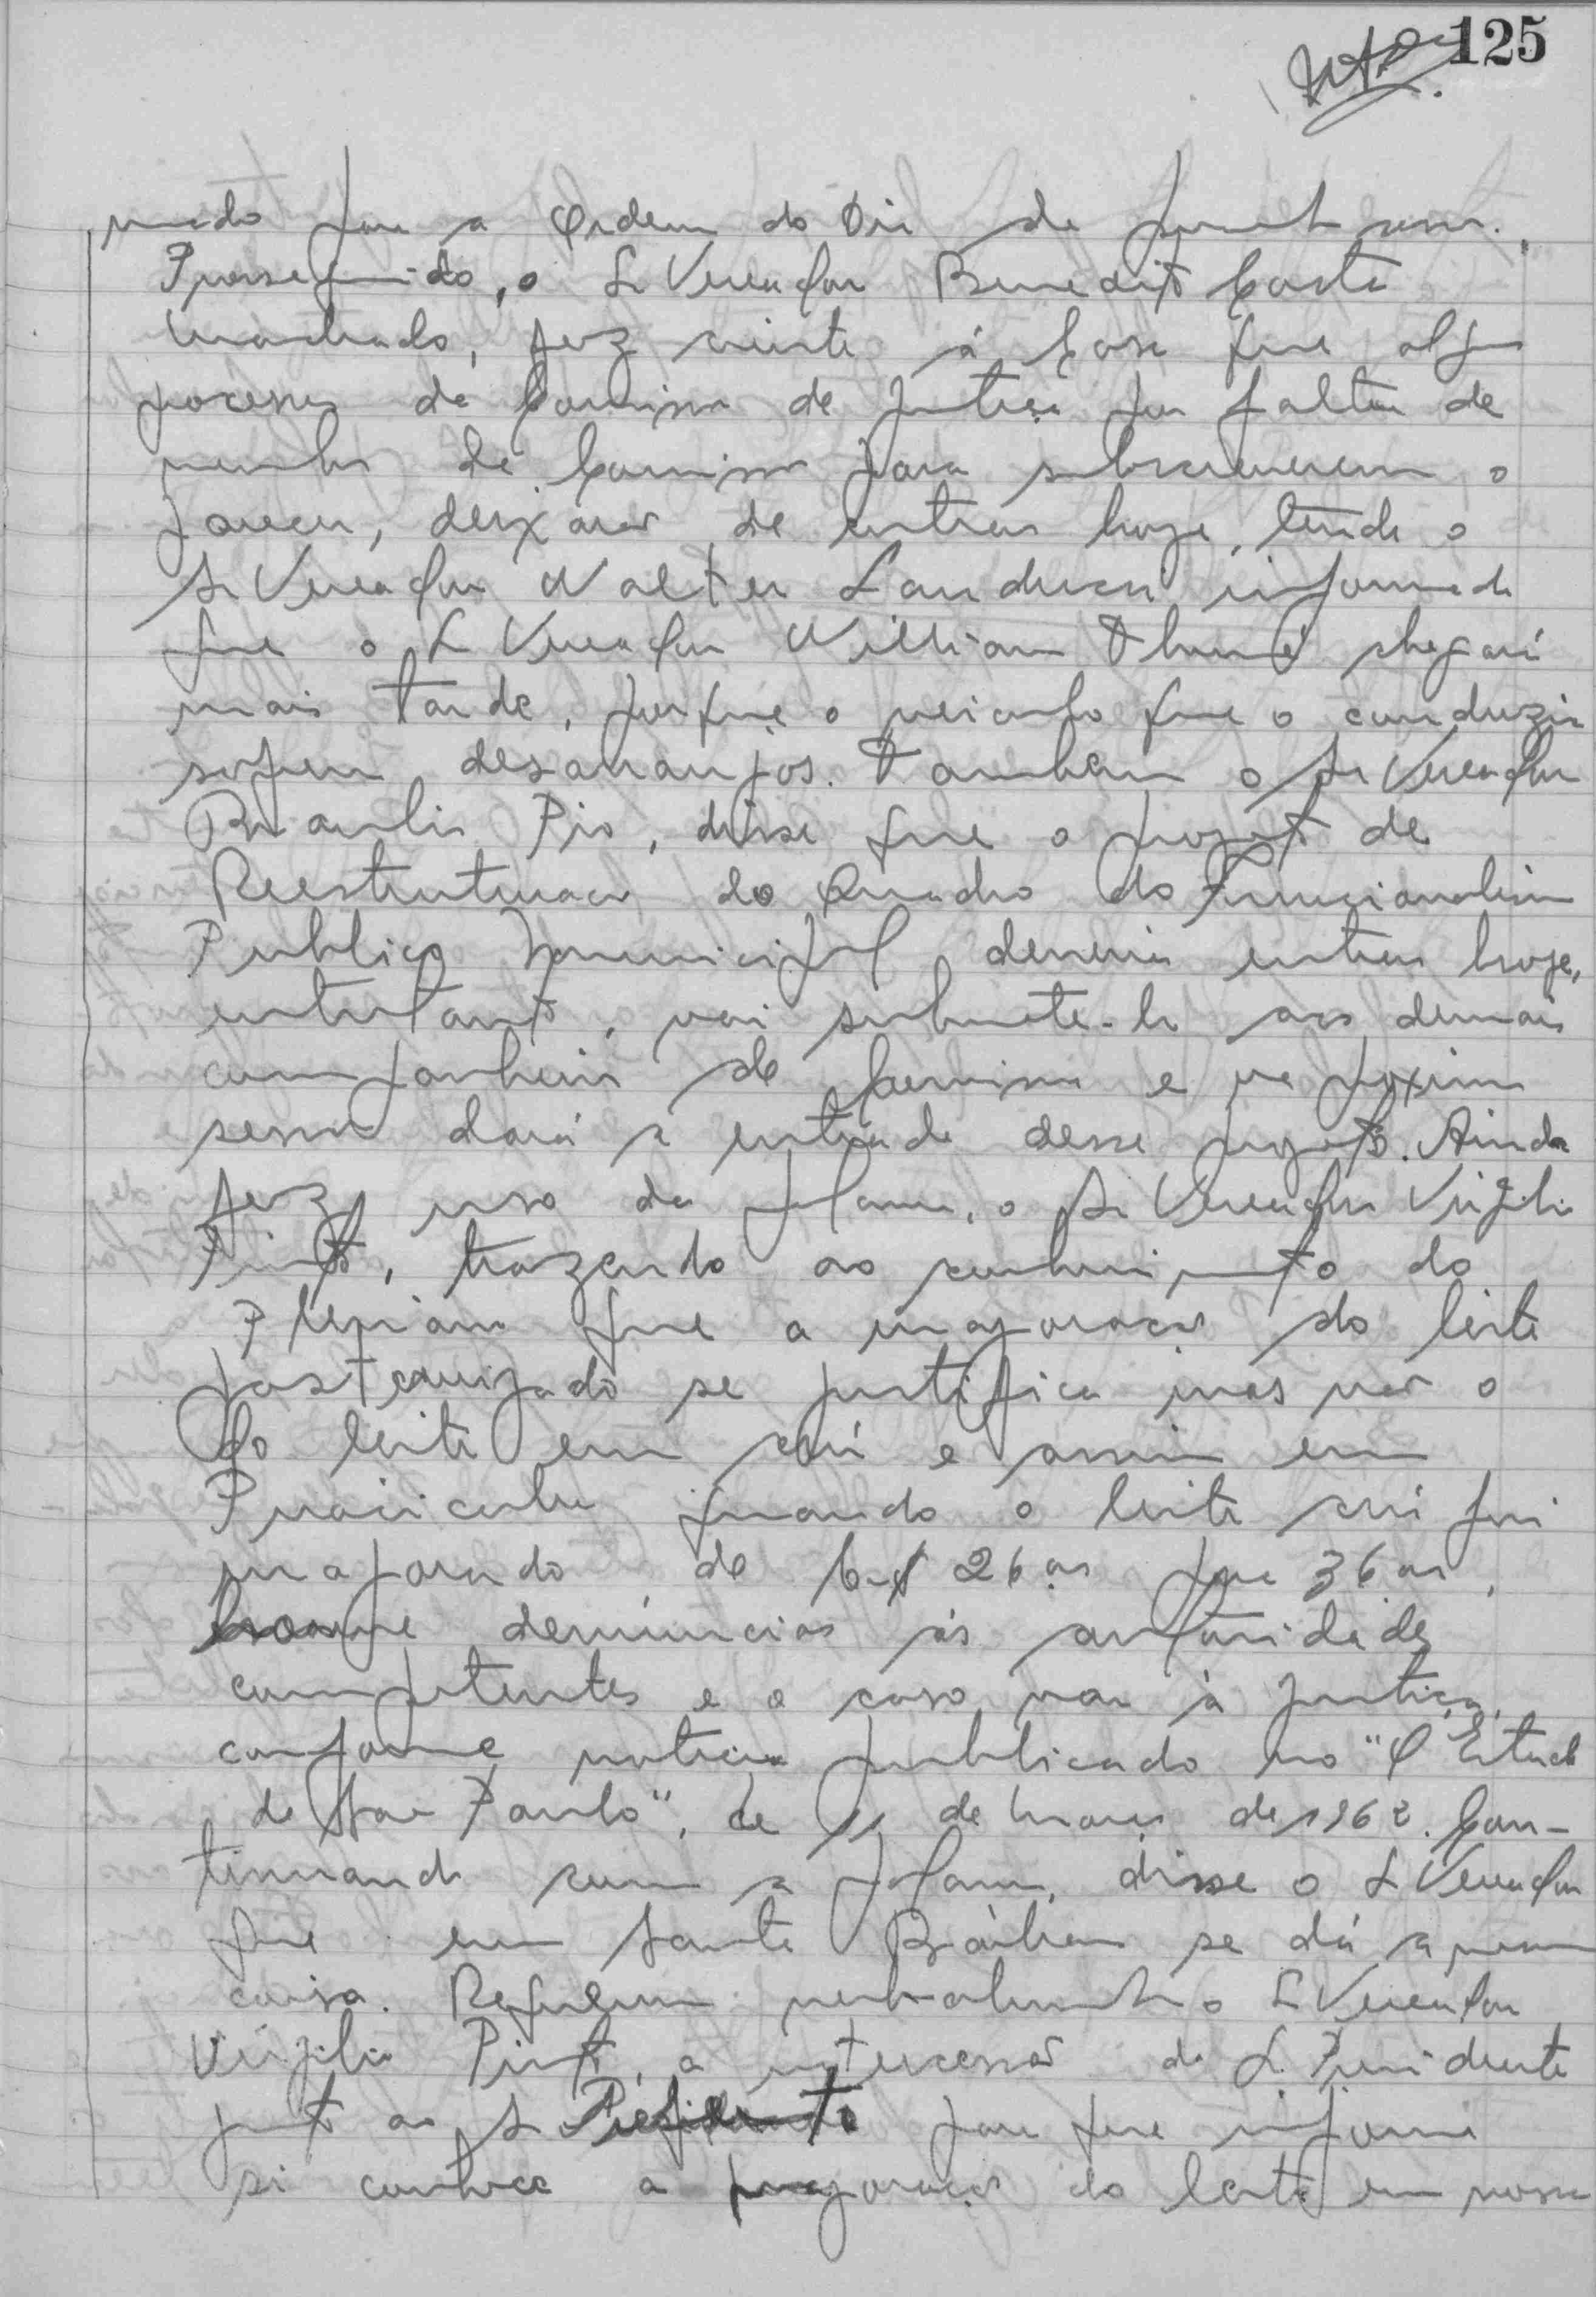 125
mado para a Ordem do Dia da
Prosseguindo, o Sr Vereador Benedito Costa
Machado, fez ciente à Casa que alguns
processos da Comissão de Justiça por falta de
membros da Comissão para subscreverem o
parecer, deixaram de entrar hoje, tendo o
Sr Vereador Walter Landucci informado
que o Sr Vereador William Thomé chegará
mais tarde, porque o veiculo que o conduzia
sofreu desarranjos. Tambem o Sr Vereador
Braulio Pio, disse que o projeto de
Reestruturação do Quadro do Funcionalismo
Publico Municipal deveria entrar hoje,
entretanto, vai submete-lo aos demais
companheiros de Comissão e na proxima
sessão dará a entrada desse projeto. Ainda
fez uso da palavra, o Sr Vereador Virgilio
Pinto, trazendo ao conhecimento do
Plenário que a majoração do leite
pasteurizado se justifica mas não o
do leite em crú e assim em
Piracicaba quando o leite crú foi
majorado de Cr$ 26,00 para 36,00,
houve denúncias às autoridades
competentes e o caso vai à justiça,
conforme noticia publicado no "O Estado
de São Paulo", de 11 de Março de 1962. Con-
tinuando com a palavra, disse o Sr Vereador
que em Santa Bárbara se dá a mesma
coisa. Requereu verbalmente o Sr Vereador
Virgilio Pinto, a intercessão do Sr. Presidente
junto ao Sr Prefeito para que informe
si conhece a majoração do leite em nossa